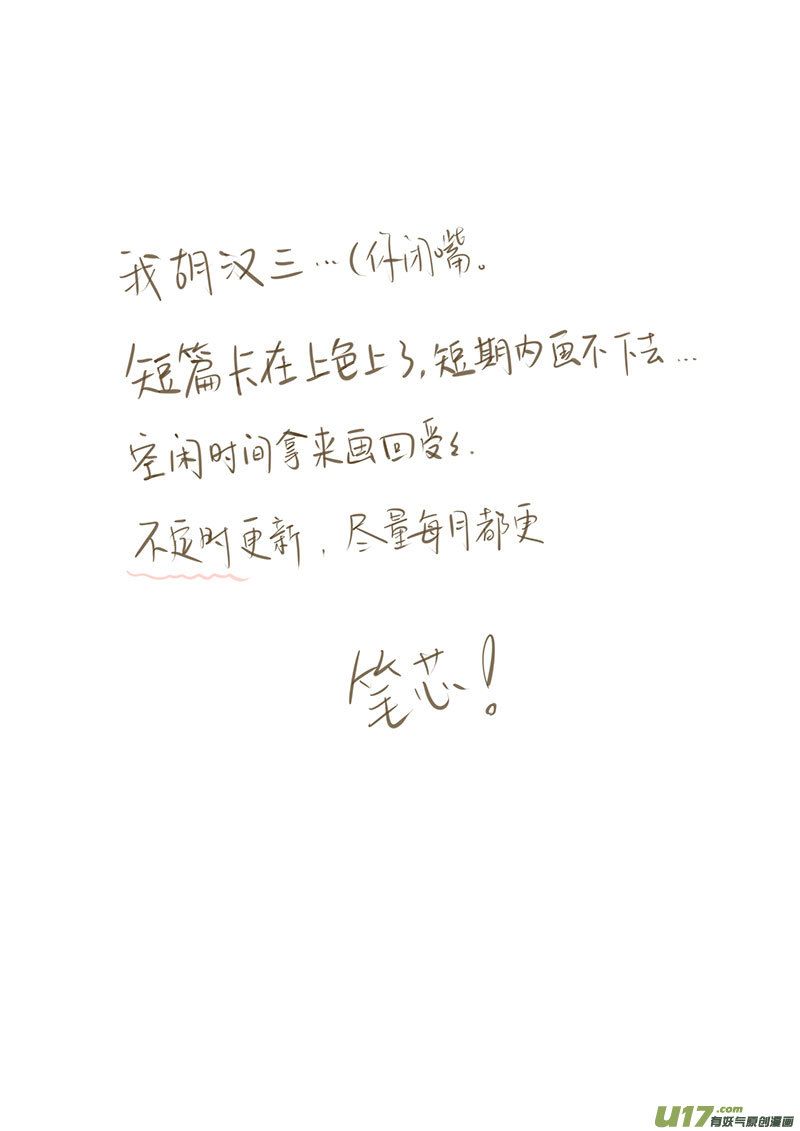 我胡汉三…(你闭嘴。
短篇卡在上色上了,短期内画不下去…
空闲时间拿来画回受
不定时更新,尽量每月都更
笔芯!
U17.com
有妖气原创漫画